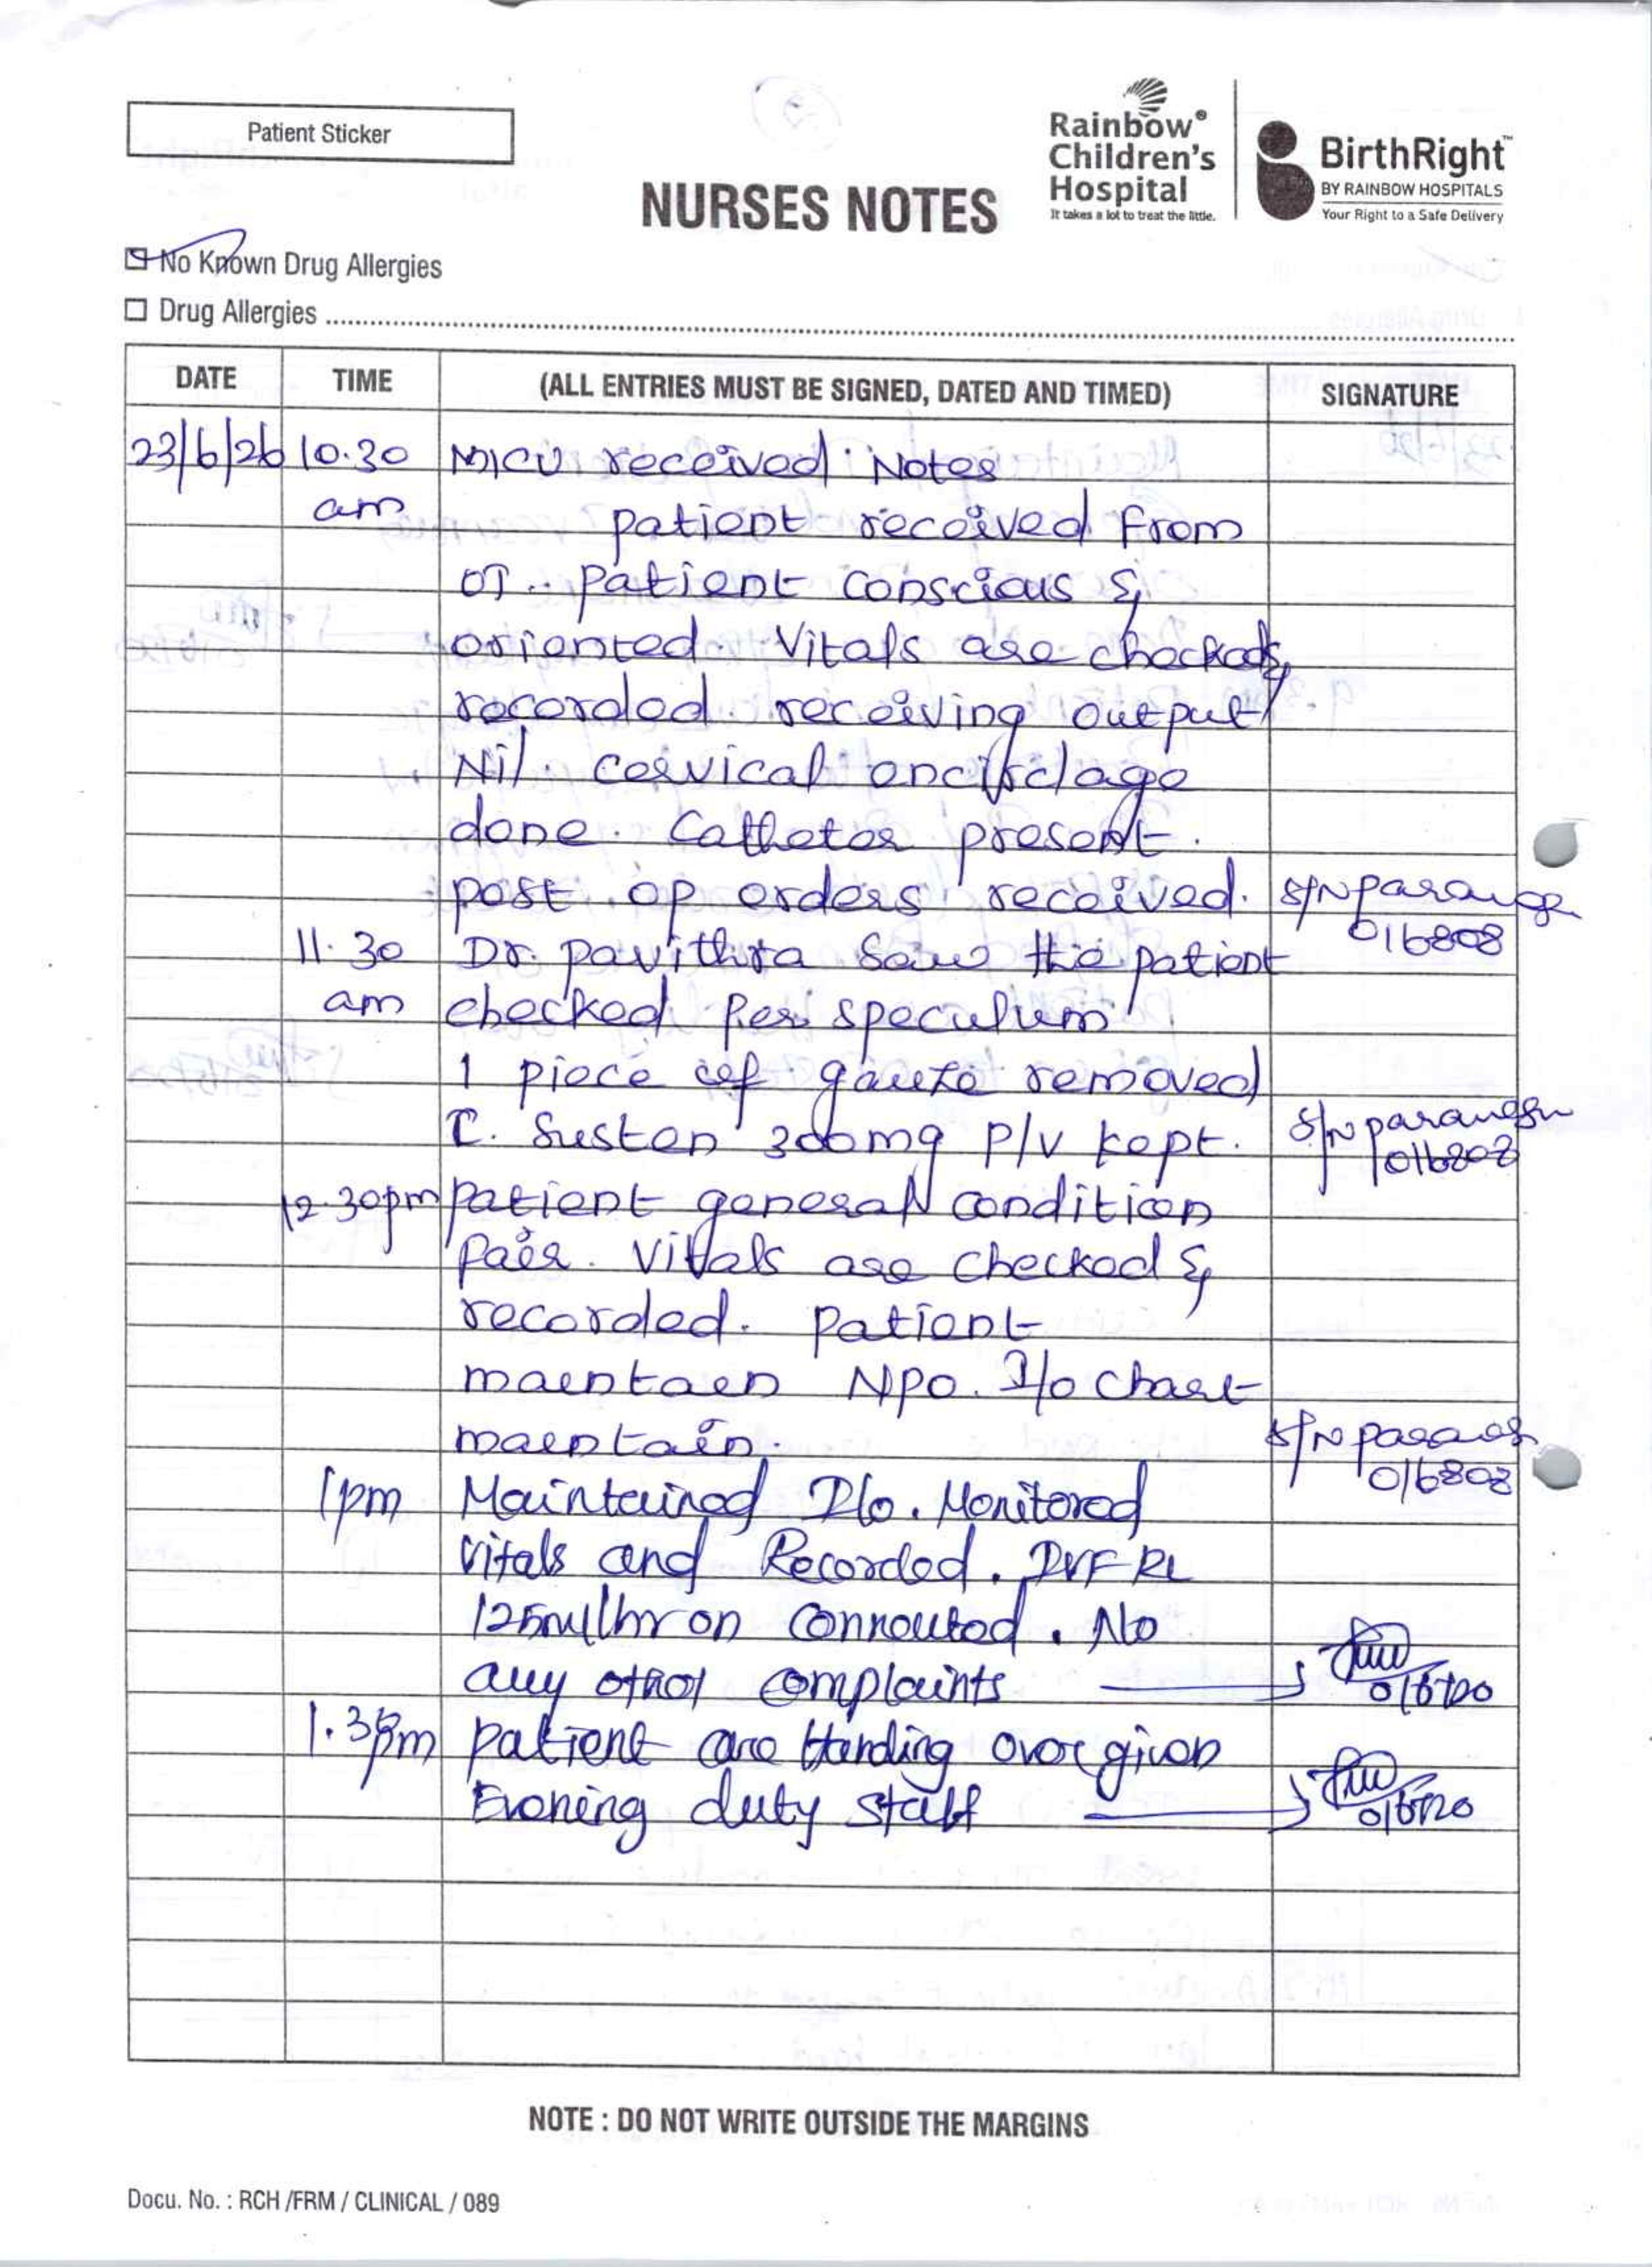 Patient Sticker
Rainbow®
Children's
Hospital
It takes a lot to treat the little.
BirthRight™
BY RAINBOW HOSPITALS
Your Right to a Safe Delivery
NURSES NOTES
No Known Drug Allergies
Drug Allergies
DATE TIME (ALL ENTRIES MUST BE SIGNED, DATED AND TIMED) SIGNATURE
23/6/26 10.30 MICU received Notes
am patient received from
OT. patient conscious &
oriented. Vitals are checked &
recorded. receiving output
Nil. cervical encirclage
done. Catheter present.
post op orders received. S/N
016808
11.30 Dr. pavithra saw the patient
am checked Per speculum
1 piece of gauze removed
T. Susten 300mg P/V kept. S/N
016808
12.30pm patient general condition
fair. Vitals are checked &
recorded. patient
maintain NPO. I/O chart
maintain. S/N
016808
1pm Maintained I/o. Monitored
Vitals and Recorded. IVF RL
125ml/hr on connected. No
any other complaints
1.30pm patient are Handing over given
Evening duty staff
NOTE : DO NOT WRITE OUTSIDE THE MARGINS
Docu. No. : RCH /FRM / CLINICAL / 089